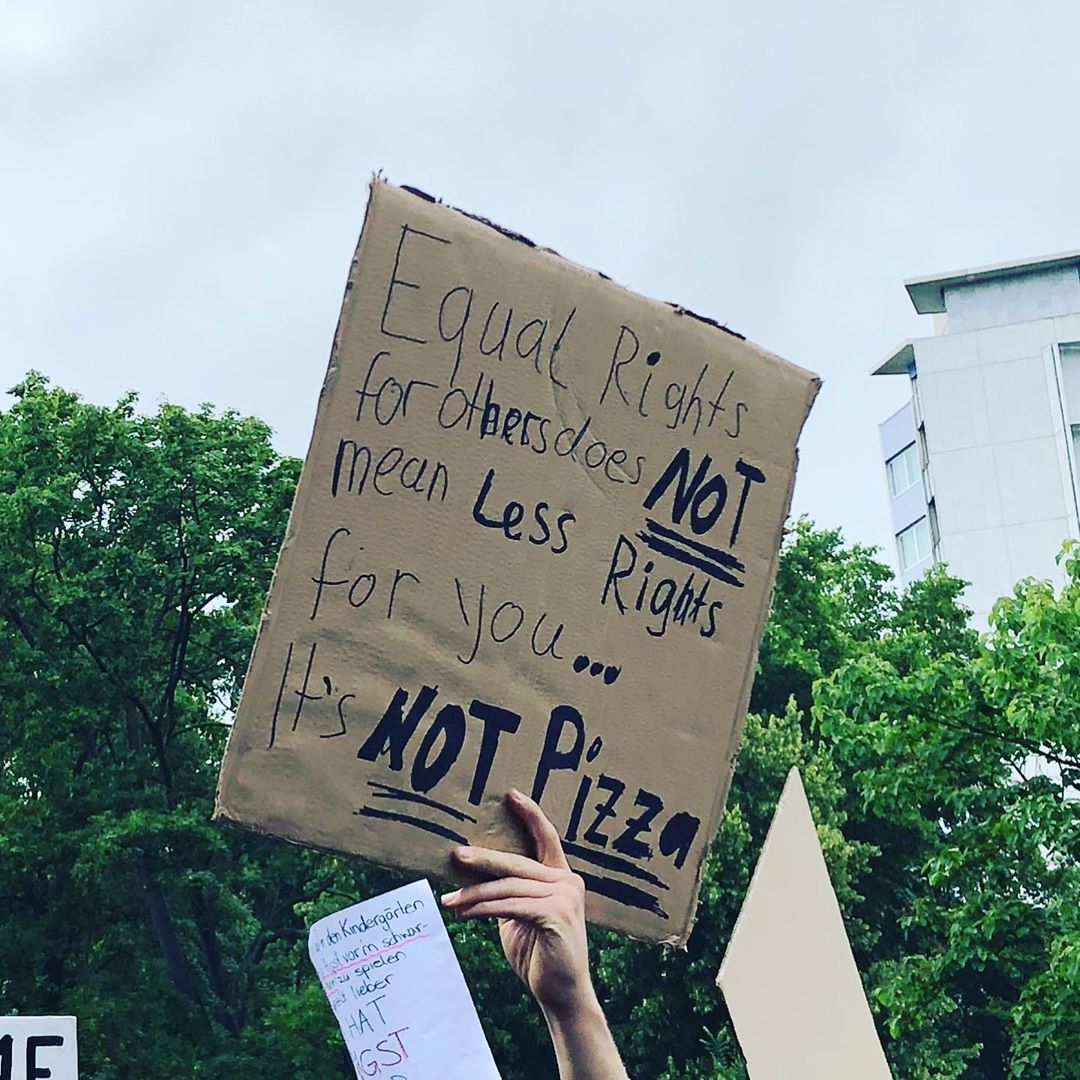 Equal Rights
for others does NOT
mean Less Rights
for you...
It's NOT Pizza
Kindergärten
vor'm schwar-
zu spielen
lieber
HAT